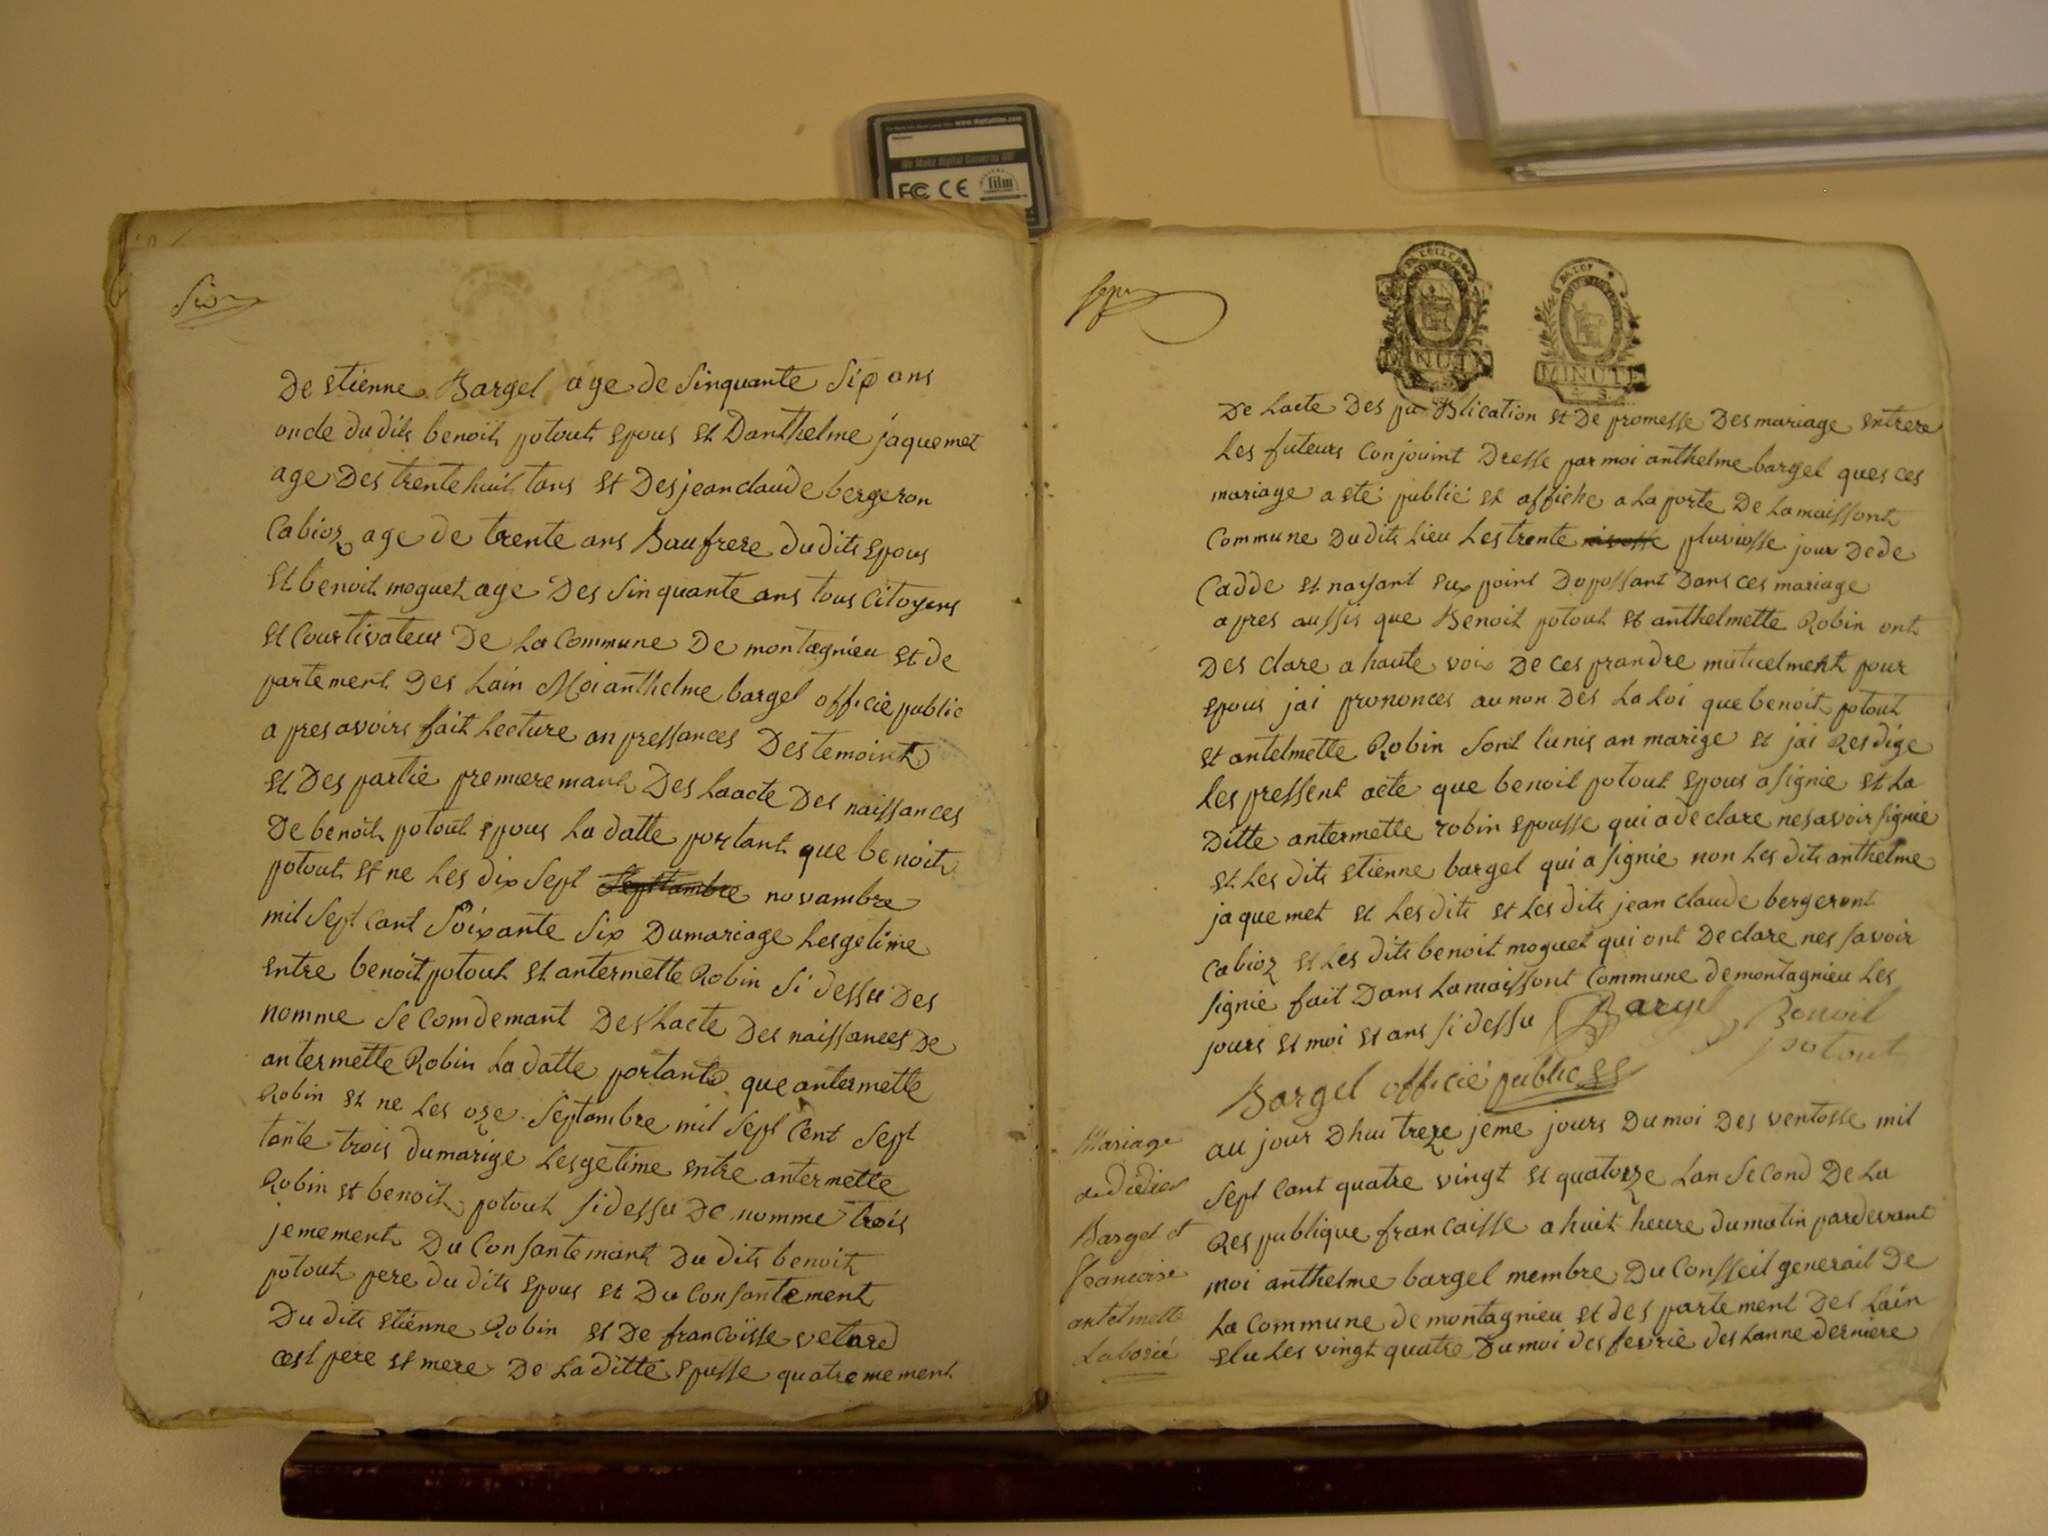 www.
We Make Digital Cameras GO!
FC CE film
Six
De Etienne Bargel age de Sinquante Six ans
oncle du dits benoit potout Epous Et Danthelme jaquemet
age Des trente huit tans Et Des jean claude bergeron
Cabioz age de trente ans Baufrere du dits Epous
Et benoit moguet age Des Sinquante ans tous Citoyens
Et Courtivateur De La Commune De montagnieu Et de
partement Des Lain Moi anthelme bargel officie public
a pres avoirs fait Lecture an pressances Des temoint
Et Des partie premæremant Des Laacte Des naissances
De benoit potout Epous La datte portant que benoit
potout Et ne Les dix Sept Septtambre novambre
mil Sept Cant Soixante Six Du mariage Lesgetime
Entre benoit potout Et antermette Robin Si dessu Des
nomme Secomdemant Des Lacte Des naissances De
antermette Robin La datte portante que antermette
Robin Et ne Les oze Septambre mil Sept Cent Sept
tante trois du marige Lesgetime Entre antermette
Robin Et benoit potout Si dessu De nomme trois
jemement Du Consantemant Du dits benoit
potout pere du dits Epous Et Du Consantement
Du dits Etienne Robin Et De francoisse vetard
cest pere Et mere De La ditte Epusse quatremement
Sept
MINUTE
MINUTE
De Lacte Des pu Blication Et De promesse Des mariage Entrere
Les futeurs Conjouint Dresse par moi anthelme bargel ques ces
mariage a Eté publié Et affiche a La porte De La maissont
Commune Du dits Lieu Les trente nivosse pluviosse jour De de
Cadde Et nayant Eux point Dopossant Dans ces mariage
apres aussis que Benoit potout Et anthelmette Robin ont
Des clare a haute voix De ces prandre mutuelment pour
Epous jai prononces au non Des La Loi que benoit potout
Et antelmette Robin Sont Lunis an marige Et jai Resdige
Les pressent acte que benoit potout Epous a signie Et La
Ditte antermette robin Epousse qui a declare nesavoir signie
Et Les dits Etienne bargel qui a signie non Les dits anthelme
jaquemet Et Les dits Et Les dits jean claude bergeront
Cabioz Et Les dits benoit moguet qui ont Declare nes savoir
signie fait Dans La maissont Commune de montagnieu Les
jours Et moi Et ans si dessu Bargel Benoit
potout
Bargel officié public
Mariage
de didier
Bargel et
francoise
antelmette
Laborié
au jour Dhui treze jeme jours Du moi Des ventosse mil
Sept Cant quatre vingt Et quatorze Lan Second De La
Res publique francaisse a huit heure du matin pardevant
moi anthelme bargel membre Du Consseil generail De
La Commune de montagnieu Et des partement Des Lain
Elu Les vingt quatre Du moi des fevrie des Lanne derniere